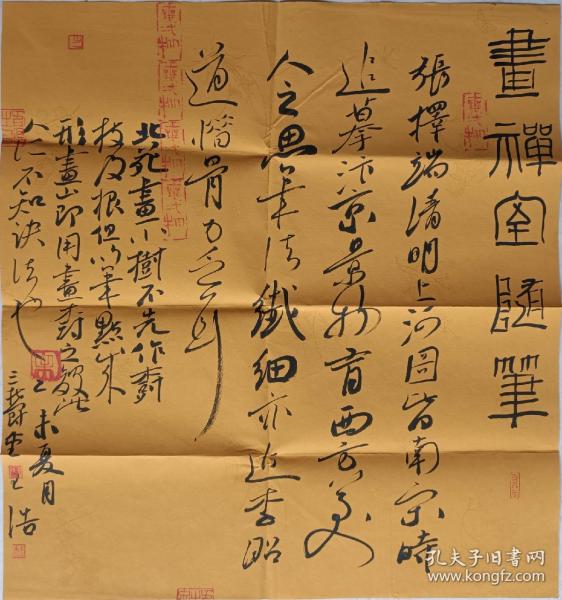 畫禪室隨筆
張擇端清明上河圖皆南宋時
追摹汴京景物有西方美人
之思筆法纖細亦近李昭
道惜骨力乏耳
北苑畫小樹不先作樹
枝及根但以筆點成
形畫山即用畫樹之皴此
人所不知訣法也
乙未夏月
王浩
孔夫子旧书网
www.kongfz.com